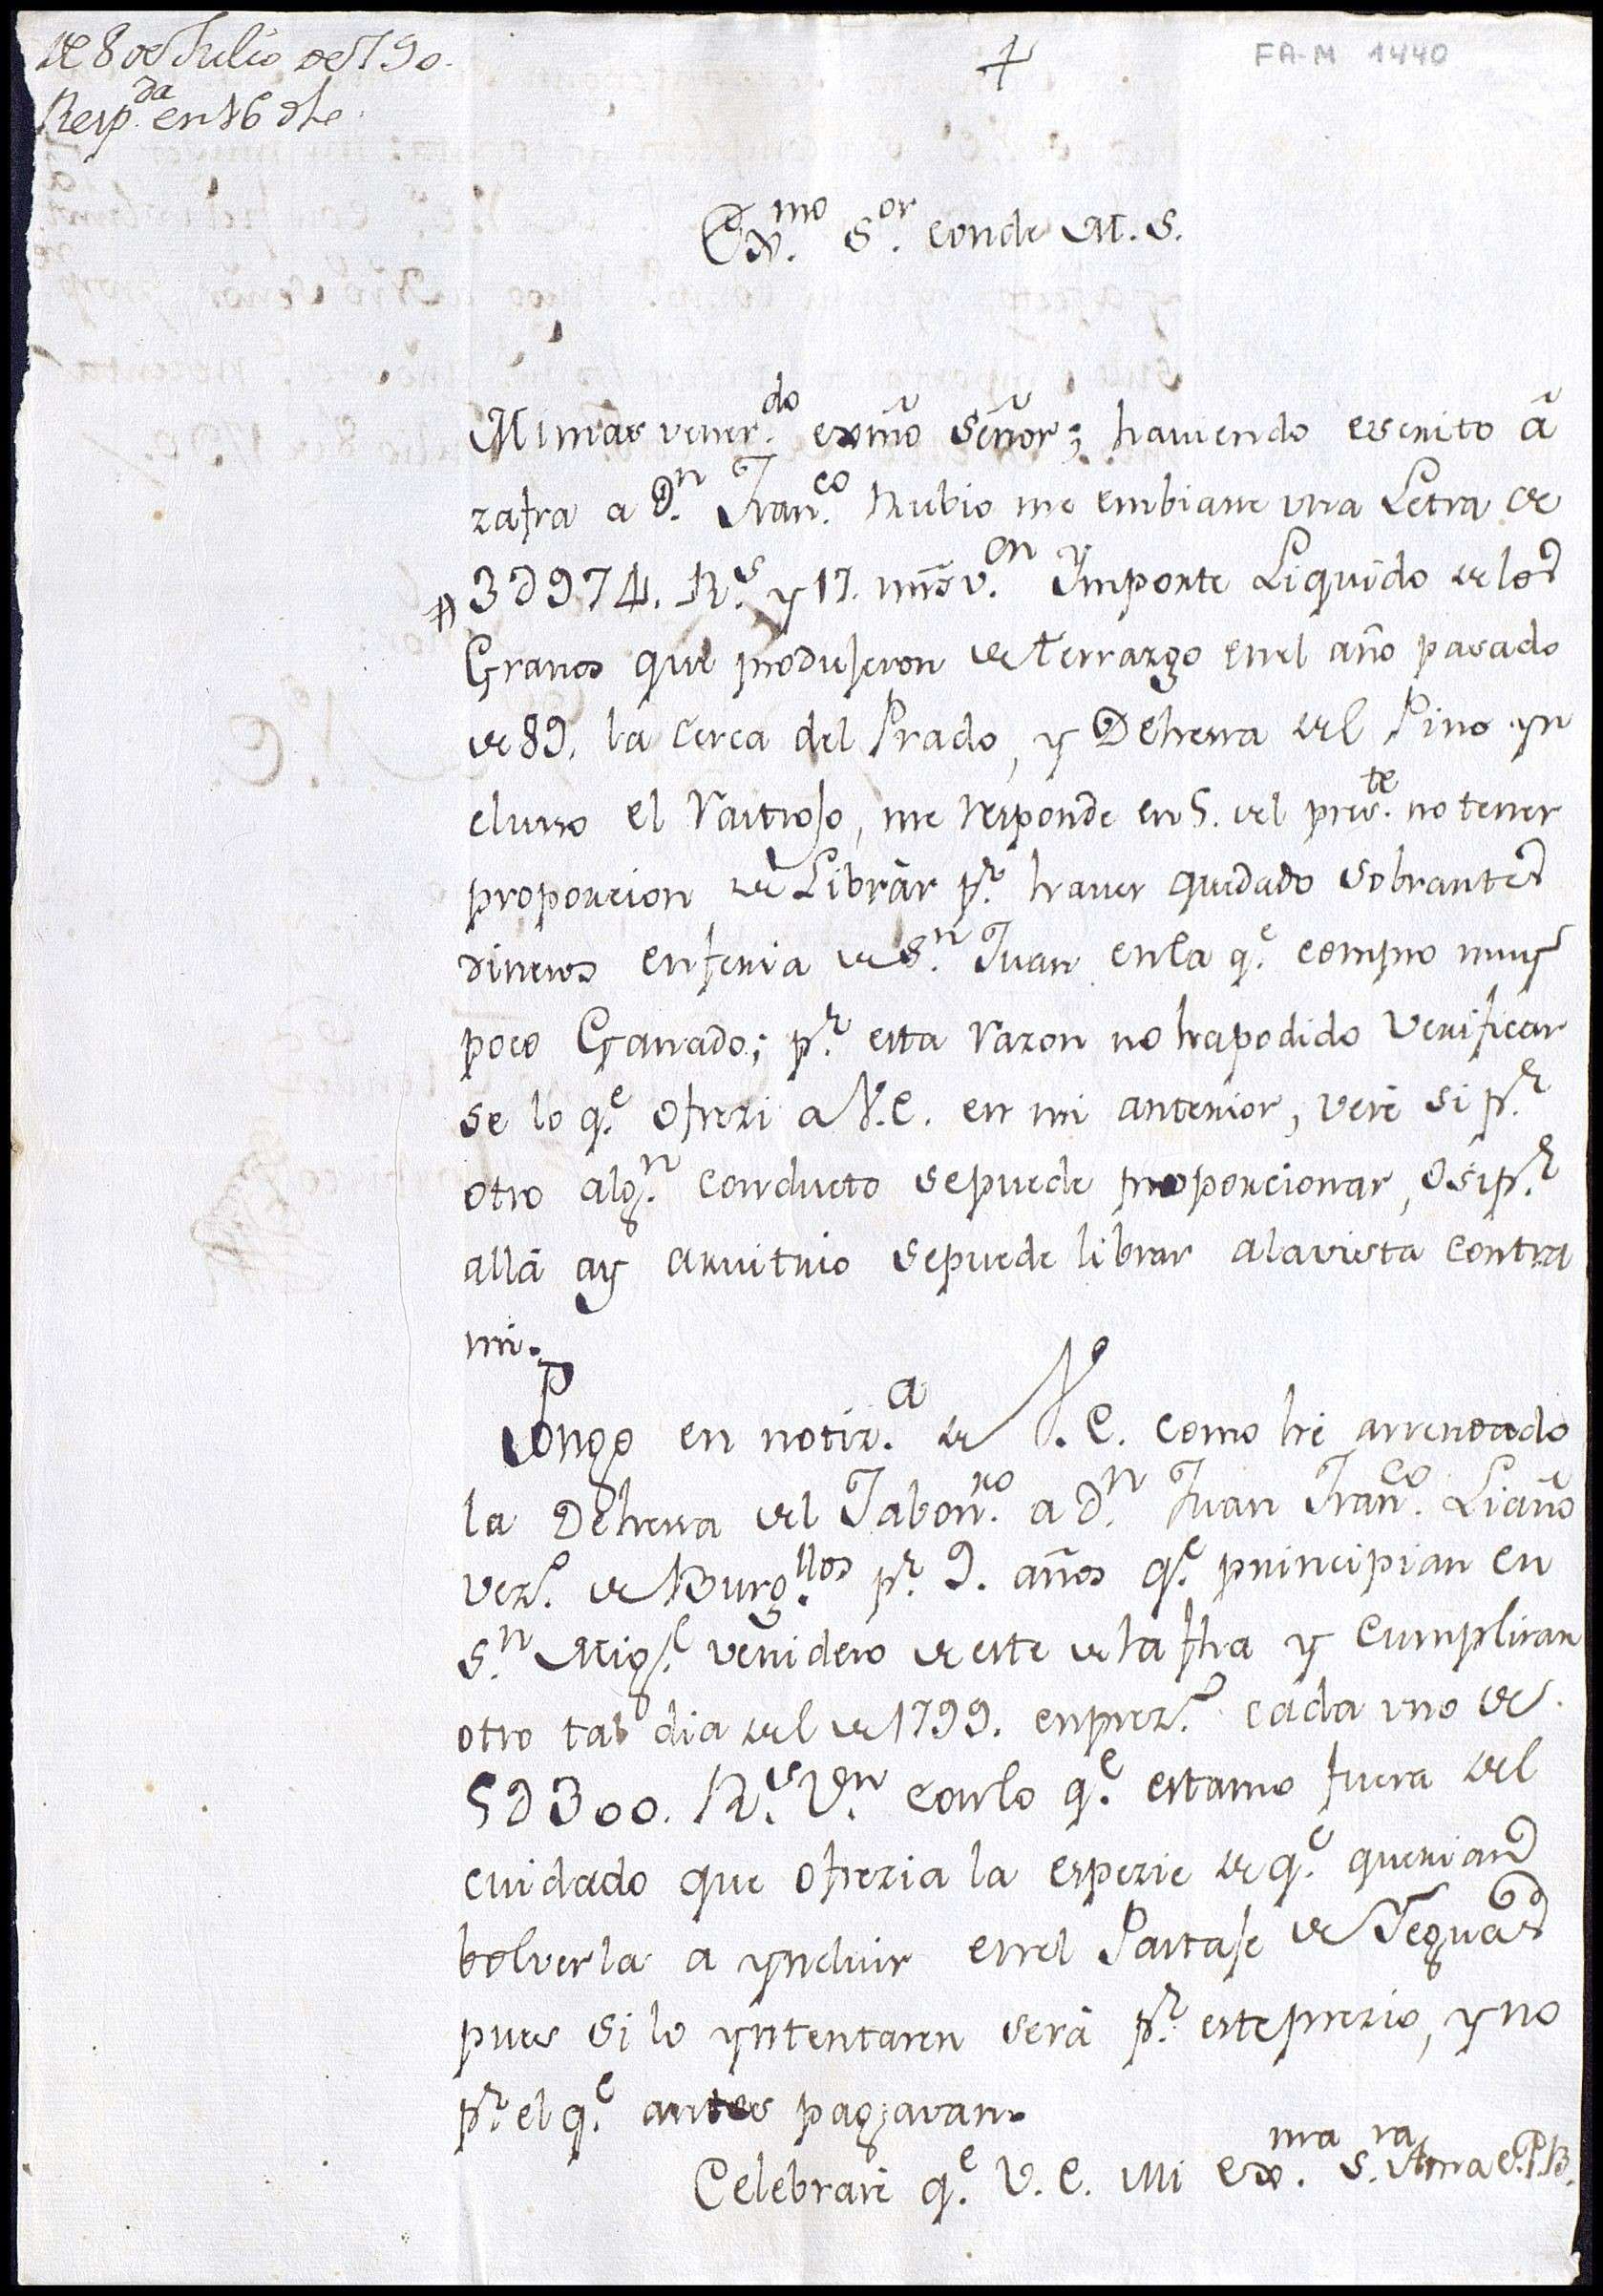 De 8 de Julio de 790.
Resp.da en 16 dho
FA-M 1440
Ex.mo S.or Conde M. S.
Mi mas vener.do exmõ señor; haviendo escrito â
zafra a D.n Fran.co Rubio me embiase una Letra de
3D974. R.s y 17. mrs v.on Ymporte Liquido de los
Granos que produjeron de terrazgo en el año pasado
de 89. la Cerca del Prado, y Dehesa del Pino yn
cluso el Vastrojo, me responde en 5. del pres.te no tener
proporcion de Librar p.r haver quedado sobrantes
dineros en feria de S.n Juan en la q.e compro muy
poco Ganado; p.r esta razon no ha podido verificar
se lo q.e ofrezi a V.E. en mi anterior, veré si p.r
otro alg.n conducto se puede proporcionar, ô si p.r
allâ ay arvitrio se puede librar a la vista contra
mi.
Pongo en notiz.a de V.E. como hé arrendado
la Dehesa del Jabon.ro a D.n Juan Fran.co Liaño
vez.o de Burg.llos p.r 9. años q.e principian en
S.n Mig.l venidero de este de la fha y cumpliran
otro tal dia del de 1799. en prez.o cada uno de
5D300. R.s V.n con lo q.e estamo fuera del
cuidado que ofrezia la espezie de q.e querian
bolverla a yncluir en el Pastaje de Yeguas
pues si lo yntentaren serâ p.r este prezio, y no
p.r el q.e antes pagavan.
Celebraré q.e V.E. Mi Ex.ma S.ra Ama C.P.B.